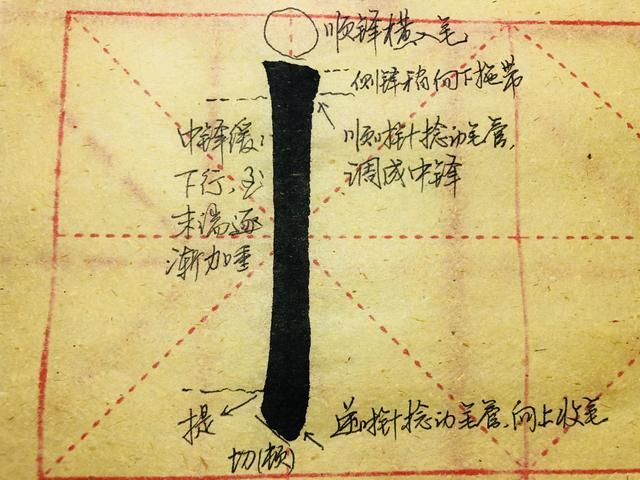 顺锋横入笔
侧锋稍向下拖带
顺时针捻动笔管，
调成中锋
中锋缓缓
下行，至
末端逐
渐加重
提
切(顿)
逆时针捻动笔管，向上收笔